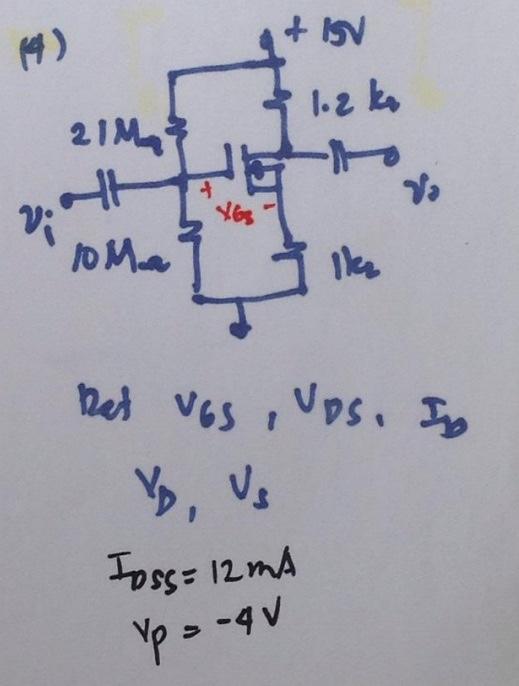 (4)
+ 15V
1.2 kΩ
21 MΩ
+
VGS -
Vi
Vo
10 MΩ
1kΩ
Det VGS, VDS, ID
VD, VS
IDSS = 12 mA
VP = -4V